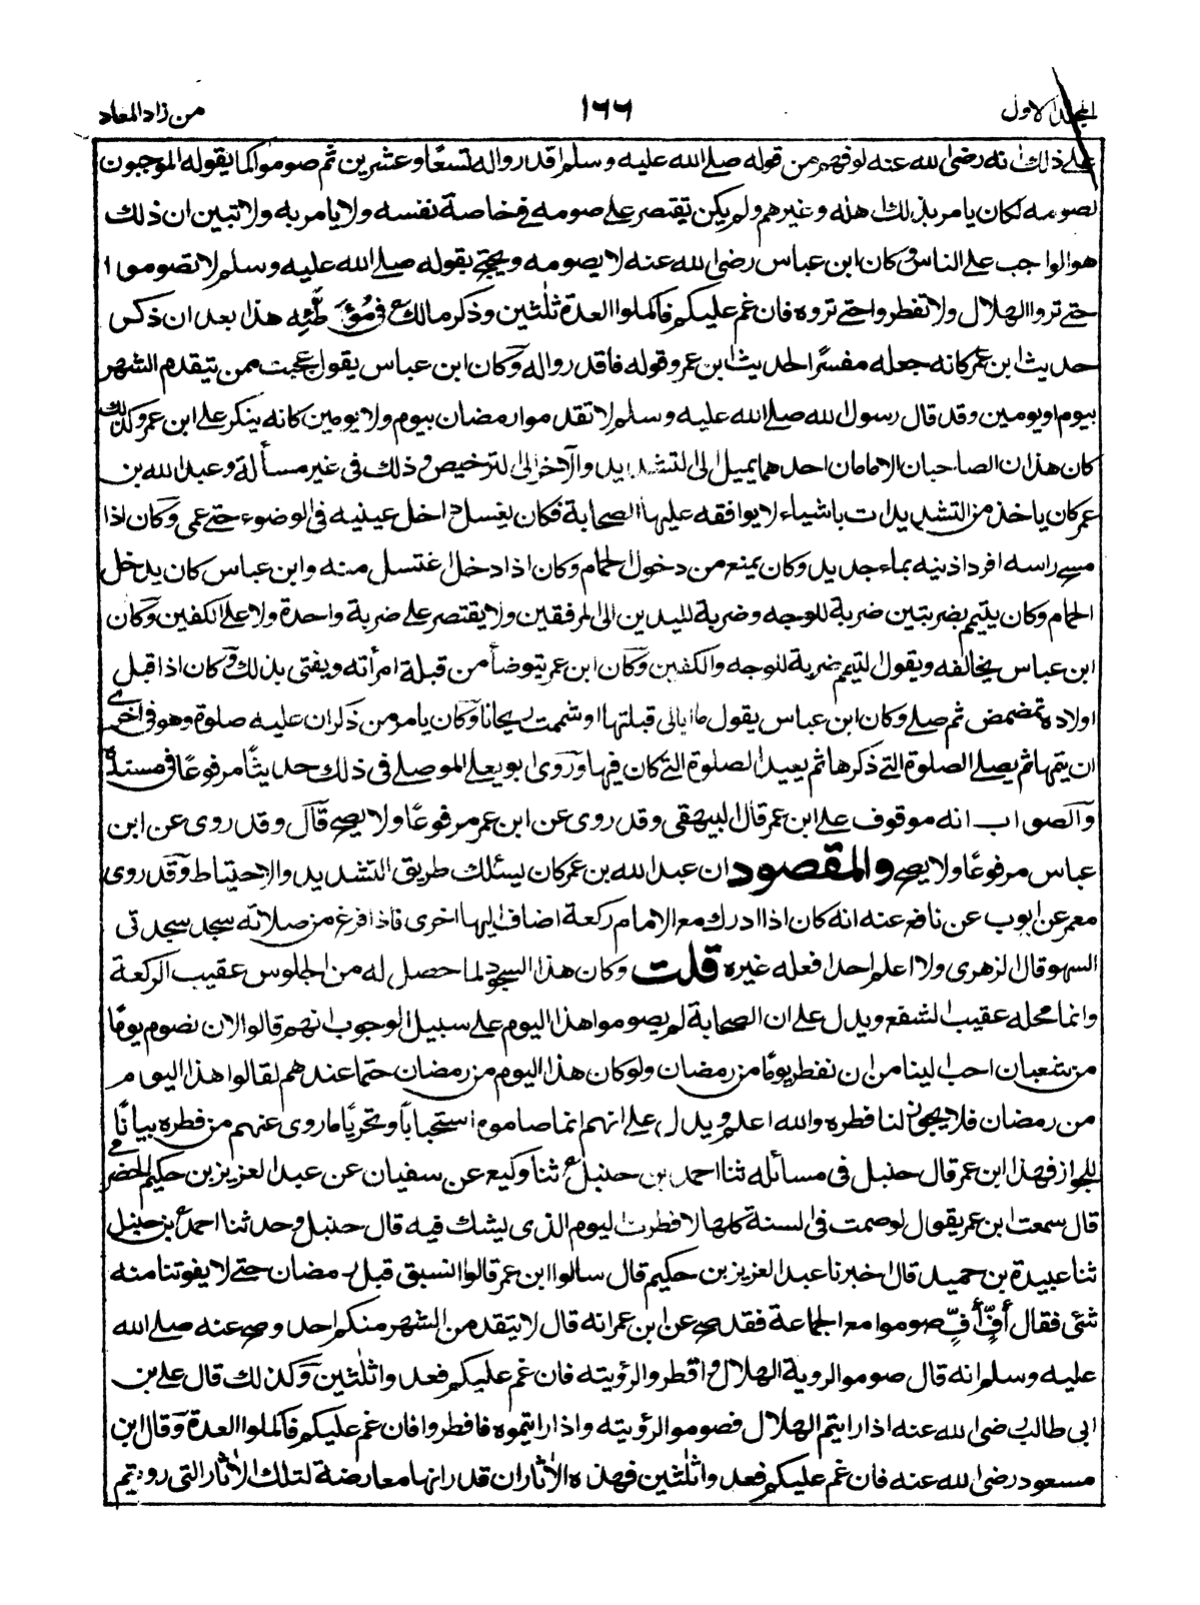 المجلد الاول ١٦٦ من زاد المعاد
على ذلك انه رضى الله عنه لو فهم من قوله صلى الله عليه وسلم اقدروا له تسعًا وعشرين ثم صوموا كما يقوله الموجبون
لصومه لكان يامر بذلك اهله وغيرهم ولم يكن يقتصر على صومه فى خاصة نفسه ولا يامر به ولا تبين ان ذلك
هو الواجب على الناس وكان ابن عباس رضى الله عنه لا يصومه ويحتج بقوله صلى الله عليه وسلم لا تصوموا
حتى تروا الهلال ولا تفطروا حتى تروه فان غم عليكم فاكملوا العدة ثلٰثين وذكر مالك فى مؤطئه هذا بعد ان ذكر
حديث ابن عمر كانه جعله مفسرًا لحديث ابن عمر وقوله فاقدروا له وكان ابن عباس يقول عجبت ممن يتقدم الشهر
بيوم او يومين وقد قال رسول الله صلى الله عليه وسلم لا تقدموا رمضان بيوم ولا يومين كانه ينكر على ابن عمر وكذلك
كان هذان الصاحبان الامامان احدهما يميل الى التشديد والآخر الى الترخيص وذلك فى غير مسألة وعبد الله بن
عمر كان ياخذ من التشديدات باشياء لا يوافقه عليها الصحابة فكان يغسل داخل عينيه فى الوضوء حتى عمى وكان اذا
مسح راسه افرد اذنيه بماء جديد وكان يمنع من دخول الحمام وكان اذا دخل اغتسل منه وابن عباس كان يدخل
الحمام وكان يتيمم بضربتين ضربة للوجه وضربة لليدين الى المرفقين ولا يقتصر على ضربة واحدة ولا على الكفين وكان
ابن عباس يخالفه ويقول التيمم ضربة للوجه والكفين وكان ابن عمر يتوضأ من قبلة امرأته ويفتى بذلك وكان اذا قبل
اولاده تمضمض ثم صلى وكان ابن عباس يقول ما ابالى قبلتها او شممت ريحانا وكان يامر من ذكر ان عليه صلوة وهو فى اخرى
ان يتمها ثم يصلى الصلوة التى ذكرها ثم يعيد الصلوة التى كان فيها وروى ابو يعلى الموصلى فى ذلك حديثًا مرفوعًا فى مسنده
والصواب انه موقوف على ابن عمر قال البيهقى وقد روى عن ابن عمر مرفوعًا ولا يصح قال وقد روى عن ابن
عباس مرفوعًا ولا يصح والمقصود ان عبد الله بن عمر كان يسلك طريق التشديد والاحتياط وقد روى
معمر عن ايوب عن نافع عنه انه كان اذا ادرك مع الامام ركعة اضاف اليها اخرى فاذا فرغ من صلاته سجد سجدتى
السهو قال الزهرى ولا اعلم احدا فعله غيره قلت وكان هذا السجود لما حصل له من الجلوس عقيب الركعة
وانما محله عقيب الشفع ويدل على ان الصحابة لم يصوموا هذا اليوم على سبيل الوجوب انهم قالوا لان نصوم يومًا
من شعبان احب الينا من ان نفطر يومًا من رمضان ولو كان هذا اليوم من رمضان حتما عندهم لقالوا هذا اليوم
من رمضان فلا يجوز لنا فطره والله اعلم ويدل على انهم انما صاموه استحبابًا وتحريًا ما روى عنهم من فطره بيانًا
للجواز فهذا ابن عمر قال حنبل فى مسائله ثنا احمد بن حنبل ثنا وكيع عن سفيان عن عبد العزيز بن حكيم الحضرمى
قال سمعت ابن عمر يقول لو صمت فى السنة كلها لافطرت ليوم الذى يشك فيه قال حنبل وحدثنا احمد بن حنبل
ثنا عبيدة بن حميد قال اخبرنا عبد العزيز بن حكيم قال سالوا ابن عمر قالوا نسبق قبل رمضان حتى لا يفوتنا منه
شئى فقال أفٍّ أفٍّ صوموا مع الجماعة فقد صح عن ابن عمر انه قال لا يتقدمن الشهر منكم احد وصح عنه صلى الله
عليه وسلم انه قال صوموا لروية الهلال وافطروا لرؤيته فان غم عليكم فعدوا ثلٰثين وكذلك قال على بن
ابى طالب رضى الله عنه اذا رايتم الهلال فصوموا لرؤيته واذا رايتموه فافطروا فان غم عليكم فاكملوا العدة وقال ابن
مسعود رضى الله عنه فان غم عليكم فعدوا ثلٰثين فهذه الاٰثار ان قدر انها معارضة لتلك الاٰثار التى رويتم